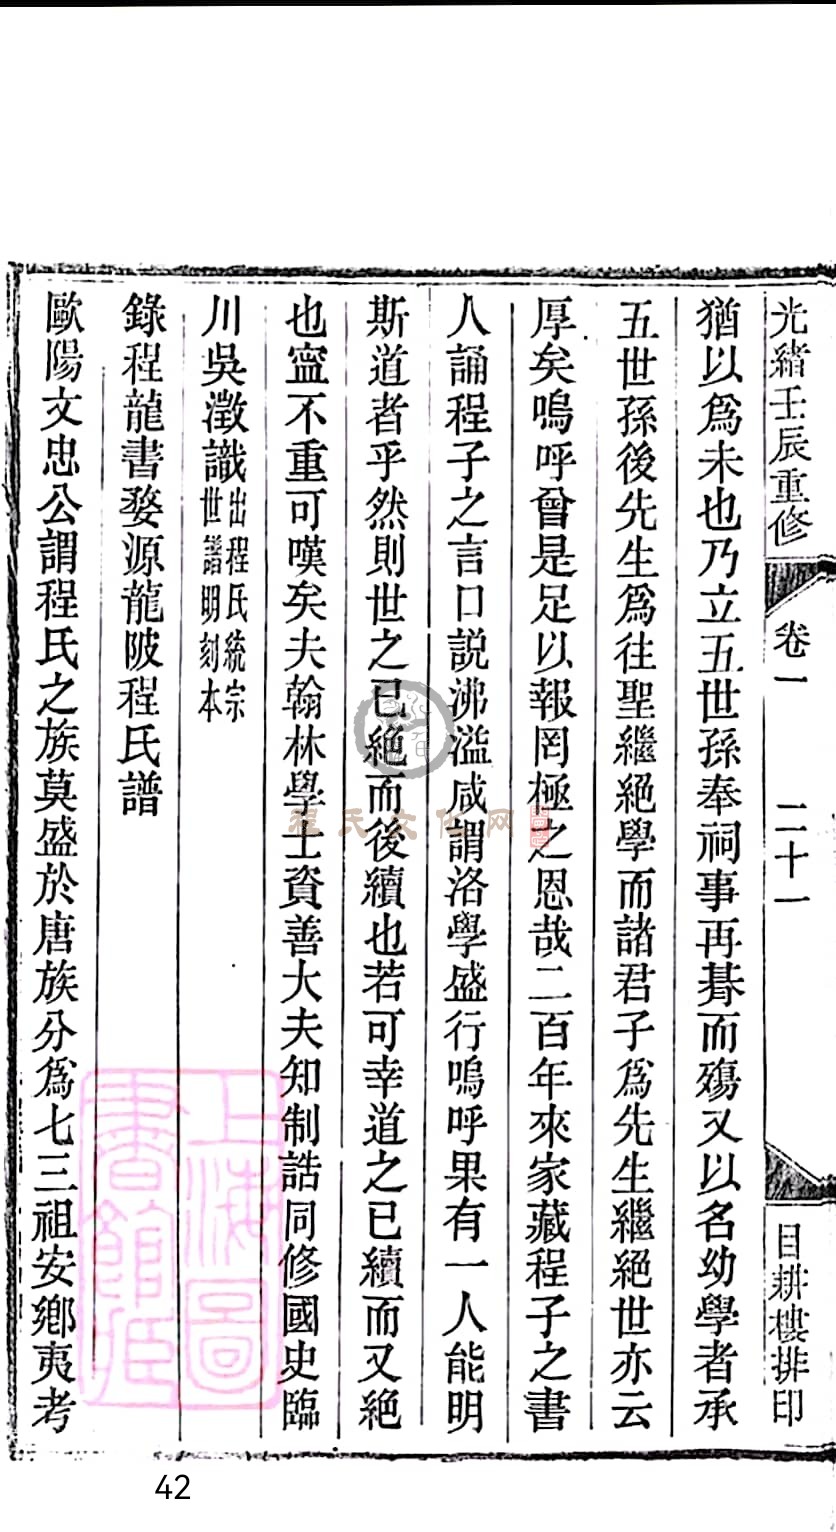 光緒壬辰重修
卷一
二十一
目耕樓排印
猶以爲未也乃立五世孫奉祠事再朞而殤又以名幼學者承
五世孫後先生爲往聖繼絕學而諸君子爲先生繼絕世亦云
厚矣嗚呼曾是足以報罔極之恩哉二百年來家藏程子之書
人誦程子之言口說沸溢咸謂洛學盛行嗚呼果有一人能明
斯道者乎然則世之已絕而後續也若可幸道之已續而又絕
也寧不重可嘆矣夫翰林學士資善大夫知制誥同修國史臨
川吳澂識出程氏統宗
世譜明刻本
錄程龍書婺源龍陂程氏譜
歐陽文忠公謂程氏之族莫盛於唐族分爲七三祖安鄉夷考
程氏文化网
上海圖
書館臧
42